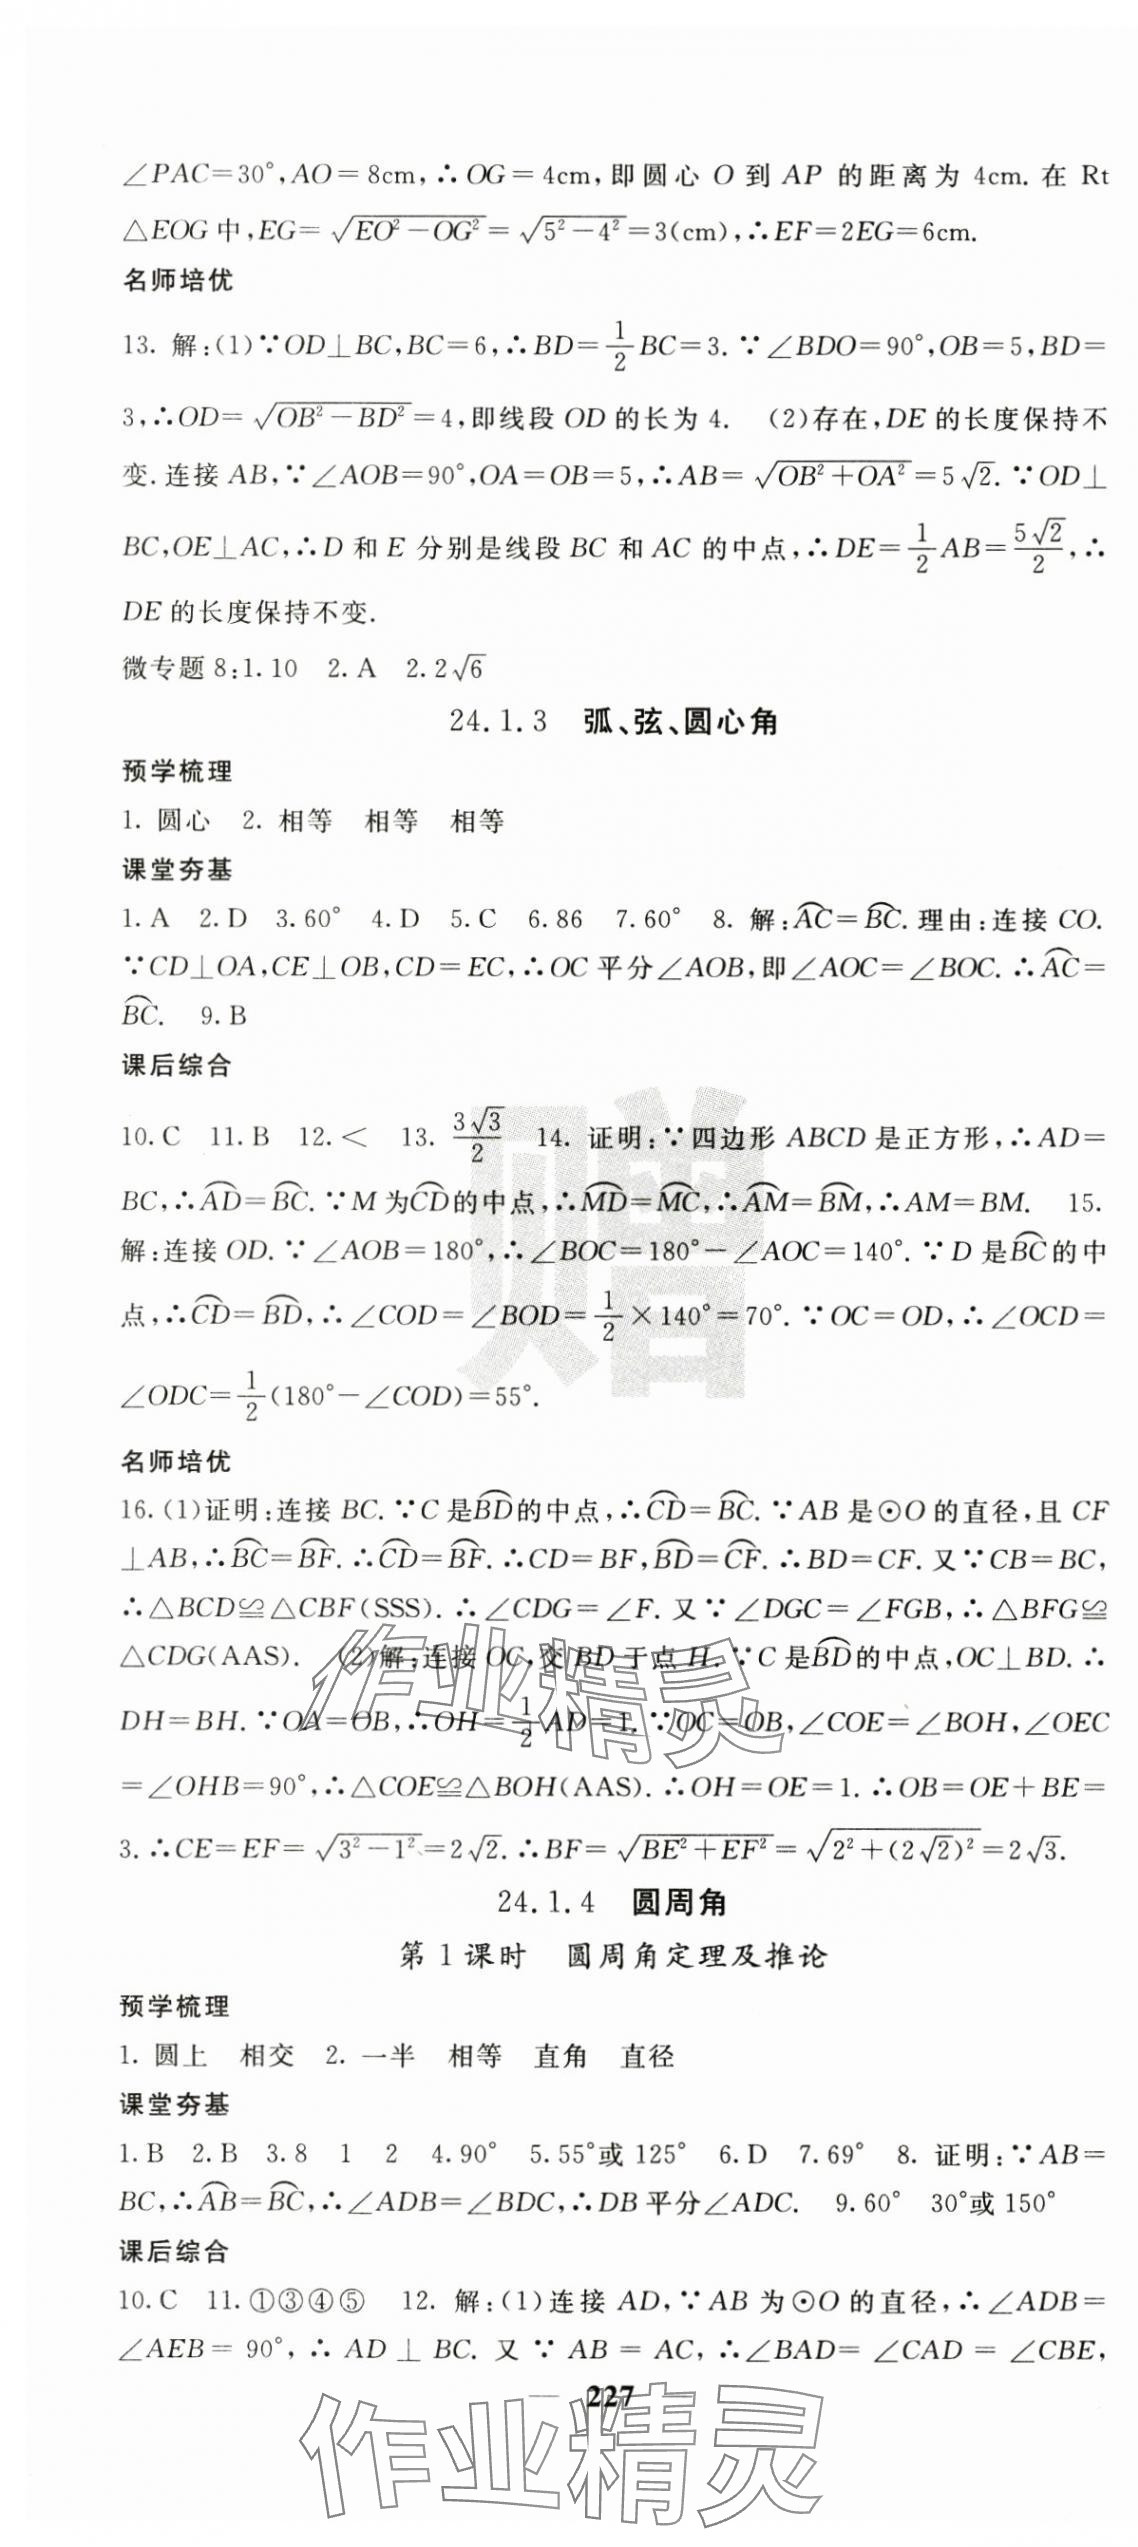 ∠PAC=30°,AO=8cm,∴OG=4cm,即圆心 O 到 AP 的距离为 4cm. 在 Rt
△EOG 中,EG=√(EO²-OG²)=√(5²-4²)=3(cm),∴EF=2EG=6cm.
名师培优
13. 解:(1)∵OD⊥BC,BC=6,∴BD=1/2 BC=3.∵∠BDO=90°,OB=5,BD=
3,∴OD=√(OB²-BD²)=4,即线段 OD 的长为 4. (2)存在,DE 的长度保持不
变.连接 AB,∵∠AOB=90°,OA=OB=5,∴AB=√(OB²+OA²)=5√2.∵OD⊥
BC,OE⊥AC,∴D 和 E 分别是线段 BC 和 AC 的中点,∴DE=1/2 AB=5√2/2,∴
DE 的长度保持不变.
微专题 8:1.10 2.A 2.2√6
24.1.3 弧、弦、圆心角
预学梳理
1. 圆心 2. 相等 相等 相等
课堂夯基
1.A 2.D 3.60° 4.D 5.C 6.86 7.60° 8. 解:⌒AC=⌒BC.理由:连接 CO.
∵CD⊥OA,CE⊥OB,CD=EC,∴OC 平分∠AOB,即∠AOC=∠BOC.∴⌒AC=
⌒BC. 9.B
课后综合
10.C 11.B 12.< 13. 3√3/2 14. 证明:∵四边形 ABCD 是正方形,∴AD=
BC,∴⌒AD=⌒BC.∵M 为⌒CD的中点,∴⌒MD=⌒MC,∴⌒AM=⌒BM,∴AM=BM. 15.
解:连接 OD.∵∠AOB=180°,∴∠BOC=180°-∠AOC=140°.∵D 是⌒BC的中
点,∴⌒CD=⌒BD,∴∠COD=∠BOD=1/2×140°=70°.∵OC=OD,∴∠OCD=
∠ODC=1/2(180°-∠COD)=55°.
名师培优
16.(1)证明:连接 BC.∵C 是⌒BD的中点,∴⌒CD=⌒BC.∵AB 是⊙O 的直径,且 CF
⊥AB,∴⌒BC=⌒BF.∴⌒CD=⌒BF.∴CD=BF,⌒BD=⌒CF.∴BD=CF.又∵CB=BC,
∴△BCD≌△CBF(SSS).∴∠CDG=∠F.又∵∠DGC=∠FGB,∴△BFG≌
△CDG(AAS). (2)解:连接 OC,交 BD 于点 H.∵C 是⌒BD的中点,OC⊥BD.∴
DH=BH.∵OA=OB,∴OH=1/2 AD=1.∵OC=OB,∠COE=∠BOH,∠OEC
=∠OHB=90°,∴△COE≌△BOH(AAS).∴OH=OE=1.∴OB=OE+BE=
3.∴CE=EF=√(3²-1²)=2√2.∴BF=√(BE²+EF²)=√(2²+(2√2)²)=2√3.
24.1.4 圆周角
第 1 课时 圆周角定理及推论
预学梳理
1. 圆上 相交 2. 一半 相等 直角 直径
课堂夯基
1.B 2.B 3.8 1 2 4.90° 5.55°或 125° 6.D 7.69° 8. 证明:∵AB=
BC,∴⌒AB=⌒BC,∴∠ADB=∠BDC,∴DB 平分∠ADC. 9.60° 30°或 150°
课后综合
10.C 11.①③④⑤ 12. 解:(1)连接 AD,∵AB 为⊙O 的直径,∴∠ADB=
∠AEB=90°,∴AD⊥BC.又∵AB=AC,∴∠BAD=∠CAD=∠CBE,
227
赠
作业精灵
作业精灵